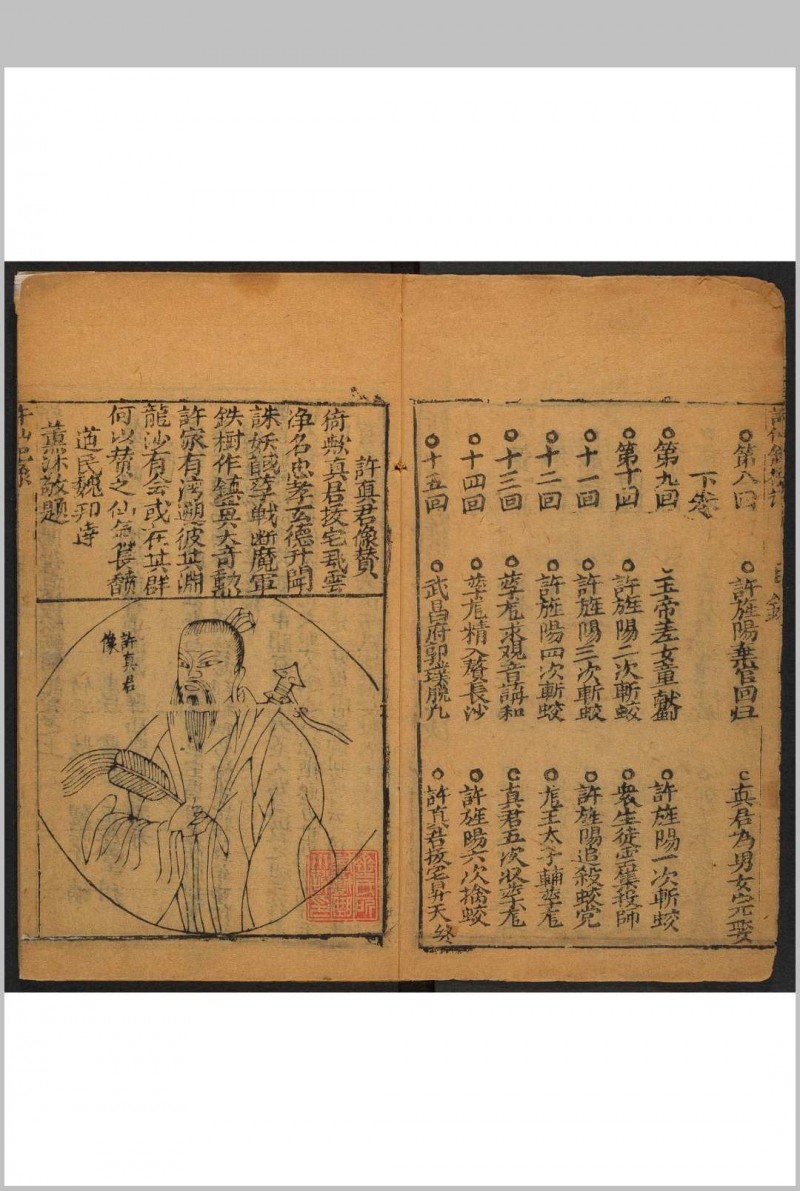 第八回 許旌陽棄官回归 真君為男女完娶
下卷
第九回 玉帝差女童献劍 許旌陽一次斬蛟
第十回 許旌陽二次斬蛟 衆生徒雲集投師
十一回 許旌陽三次斬蛟 許旌陽追殺蛟党
十二回 許旌陽四次斬蛟 龙王太子輔孽龙
十三回 孽龙求观音講和 真君五次收孽龙
十四回 孽龙精入贅長沙 許旌陽六次擒蛟
十五回 武昌府郭璞脱凡 許真君拔宅昇天 終
許真君像賛
猗歟真君拔宅飛雲
净名忠孝玄德升聞
誅妖馘孽戦断魔軍
鉄樹作鎮莫大奇勳
許家有湾遡彼其淵
龍沙有会或在其群
何以賛之仙氣長馥
道民魏邦達
薫沐敬題
許真君
像